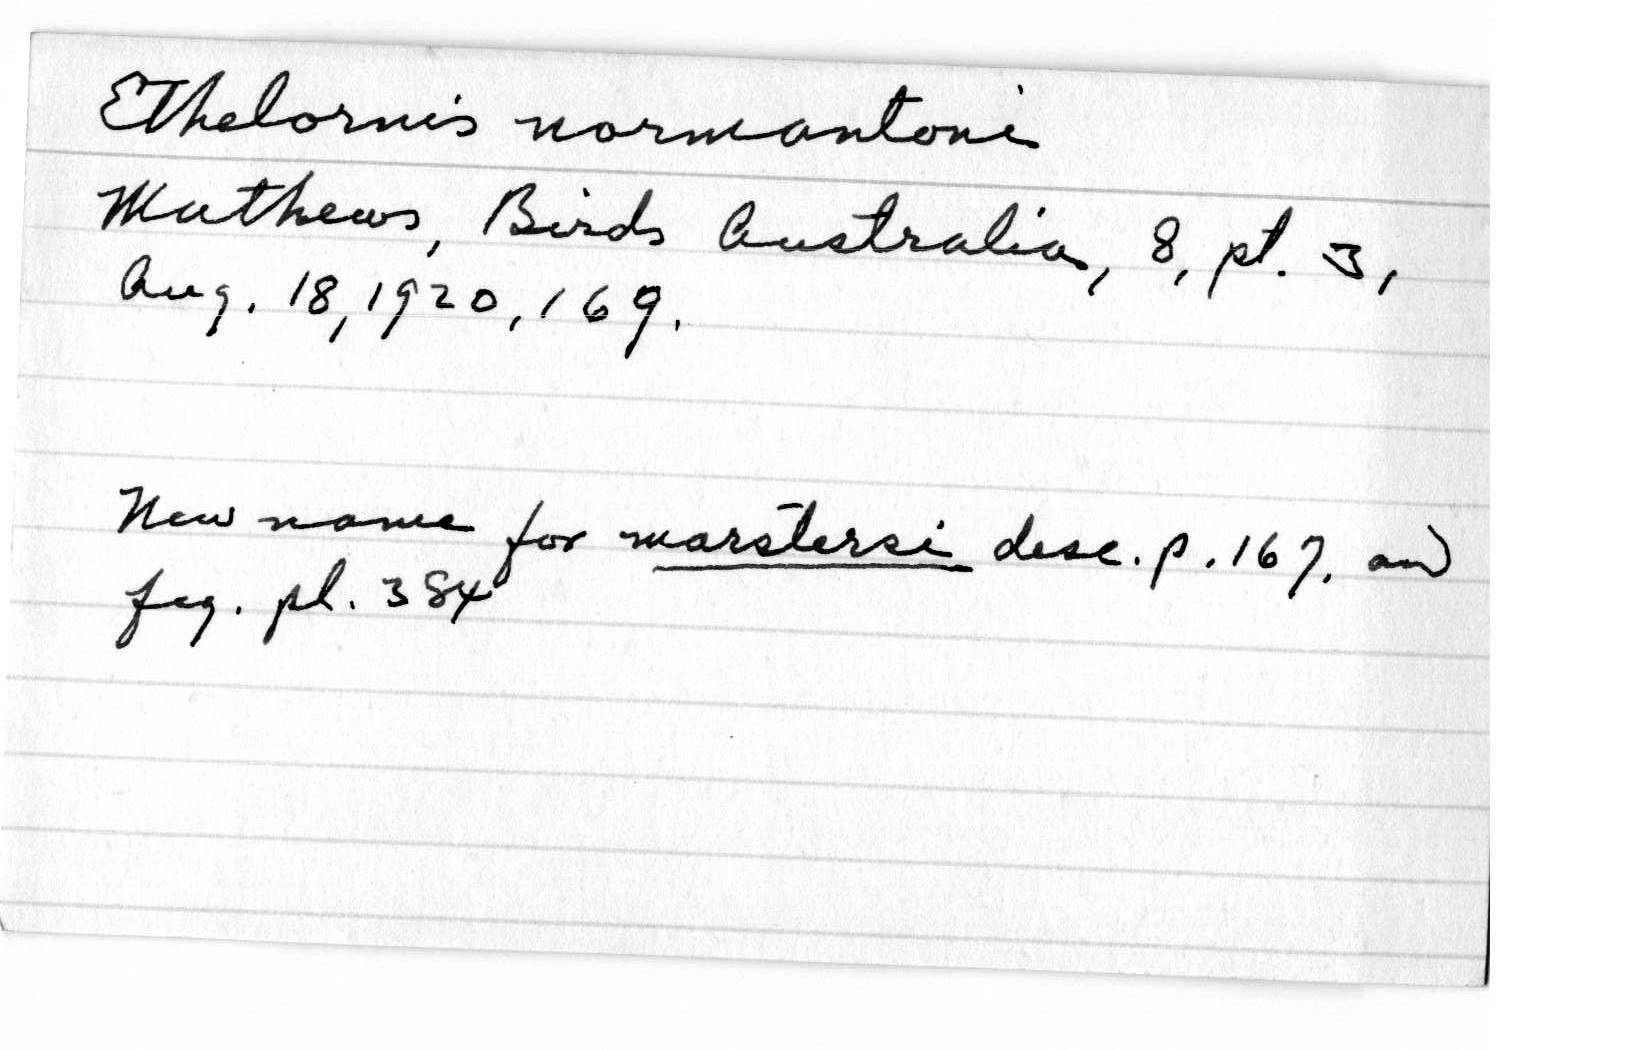 Ethelornis normantoni
Mathews, Birds Australia, 8, pt. 3,
Aug. 18, 1920, 169.
New name for marstersi desc. p. 167, and
fig. pl. 384